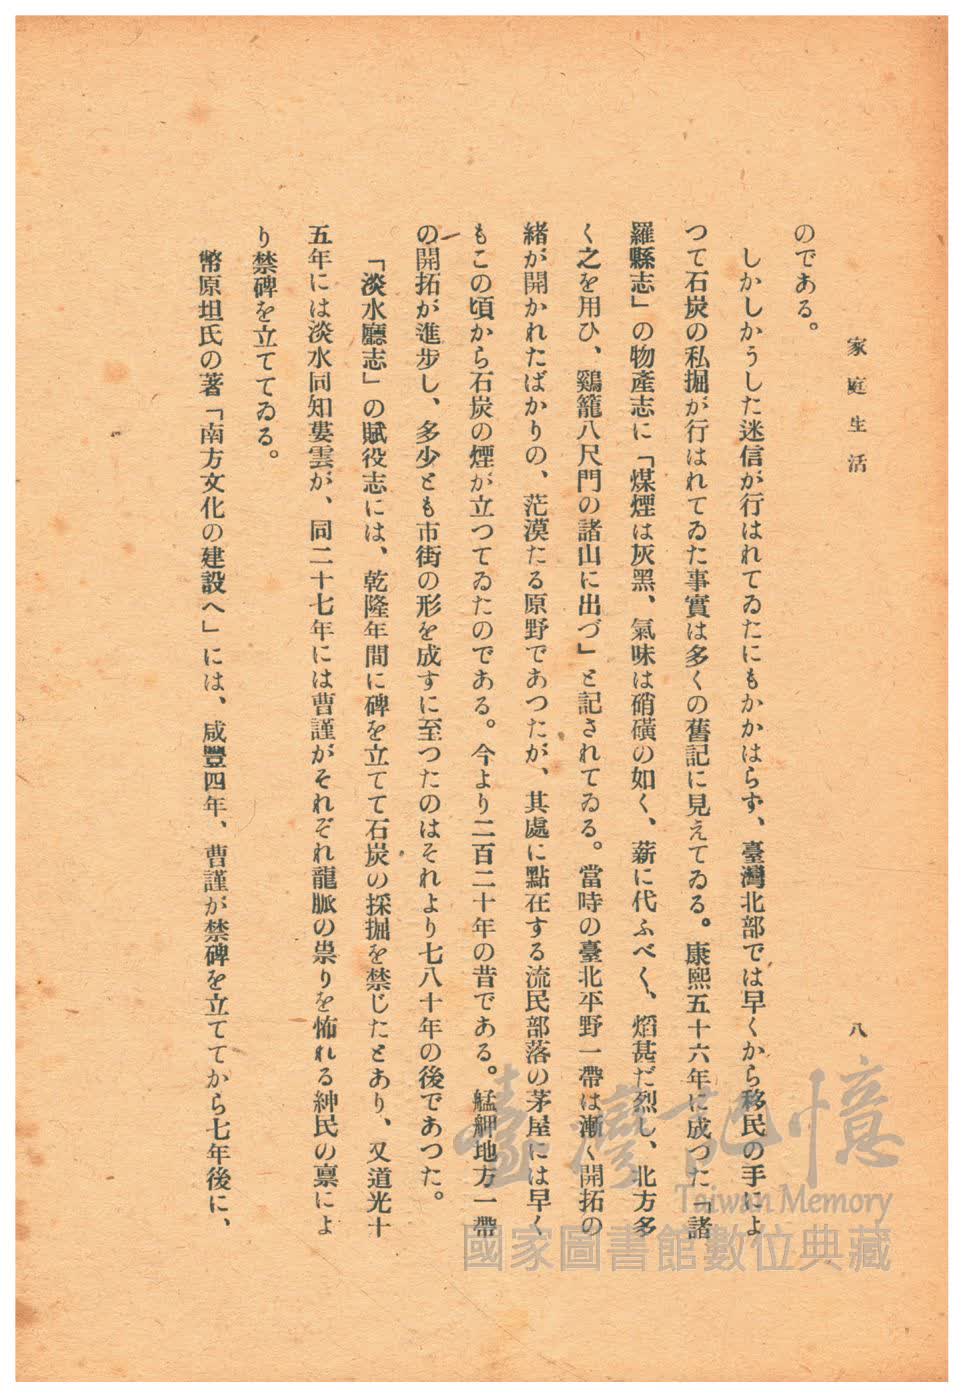 家庭生活
八
のである。
しかしかうした迷信が行はれてゐたにもかかはらず、臺灣北部では早くから移民の手によ
つて石炭の私掘が行はれてゐた事實は多くの舊記に見えてゐる。康熙五十六年に成つた「諸
羅縣志」の物產志に「煤煙は灰黑、氣味は硝磺の如く、薪に代ふべく、熖甚だ烈し、北方多
く之を用ひ、鷄籠八尺門の諸山に出づ」と記されてゐる。當時の臺北平野一帶は漸く開拓の
緖が開かれたばかりの、茫漠たる原野であつたが、其處に點在する流民部落の茅屋には早く
もこの頃から石炭の煙が立つてゐたのである。今より二百二十年の昔である。艋舺地方一帶
の開拓が進步し、多少とも市街の形を成すに至つたのはそれより七八十年の後であつた。
「淡水廳志」の賦役志には、乾隆年間に碑を立てて石炭の採掘を禁じたとあり、又道光十
五年には淡水同知婁雲が、同二十七年には曹謹がそれぞれ龍脈の祟りを怖れる紳民の稟によ
り禁碑を立ててゐる。
幣原坦氏の著「南方文化の建設へ」には、咸豐四年、曹謹が禁碑を立ててから七年後に、
臺灣記憶
Taiwan Memory
國家圖書館數位典藏